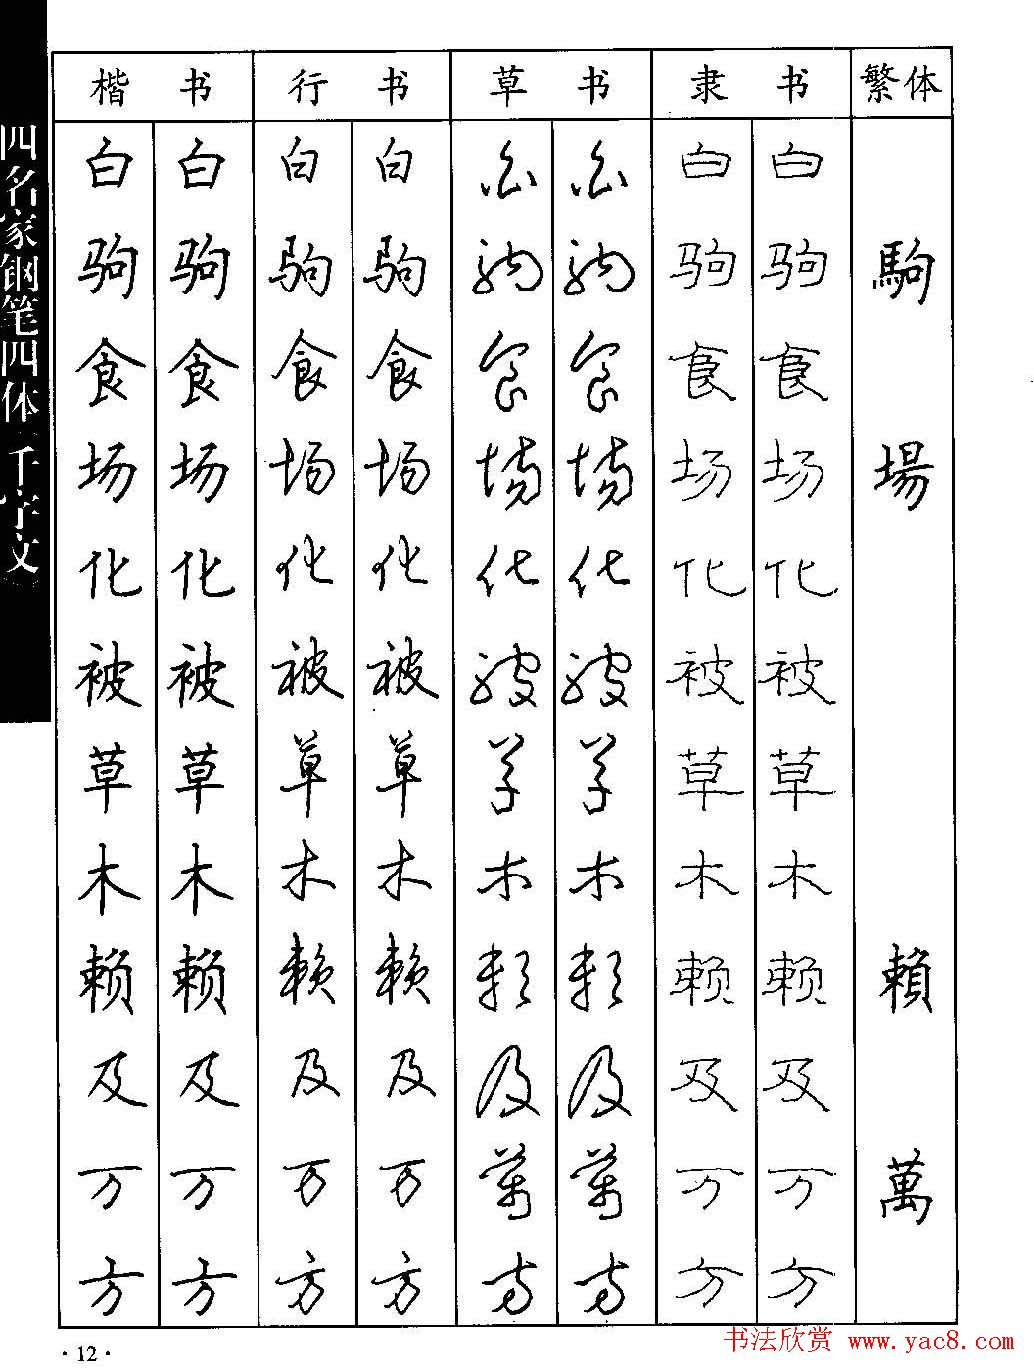 四名家钢笔四体《千字文》
楷书 行书 草书 隶书 繁体
白 白 白 白 白 白 白 白
驹 驹 驹 驹 驹 驹 驹 驹 駒
食 食 食 食 食 食 食 食
场 场 场 场 场 场 场 场 場
化 化 化 化 化 化 化 化
被 被 被 被 被 被 被 被
草 草 草 草 草 草 草 草
木 木 木 木 木 木 木 木
赖 赖 赖 赖 赖 赖 赖 赖 賴
及 及 及 及 及 及 及 及
万 万 万 万 萬 萬 万 万 萬
方 方 方 方 方 方 方 方
·12·
书法欣赏 www.yac8.com